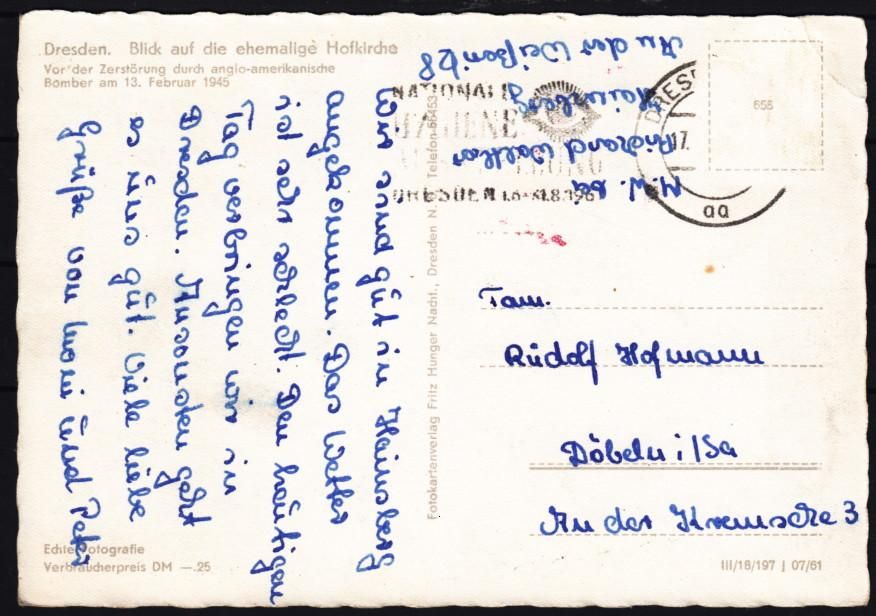 Dresden. Blick auf die ehemalige Hofkirche
Vor der Zerstörung durch anglo-amerikanische
Bomber am 13. Februar 1945
Wir sind gut in Hainsberg
angekommen. Das Wetter
ist sehr schlecht. Den heutigen
Tag verbringen wir in
Dresden. Ansonsten geht
es uns gut. Viele liebe
Grüße von Moni und Peter
Echte Fotografie
Verbraucherpreis DM —.25
Fotokartenverlag Fritz Hunger Nachf., Dresden N. Telefon 56453
NATIONALE
DRESDEN 1.6-31.8.196
DRESD
17.
aa
656
Hainsberg
An der Weißeritz 8
Fam.
Rudolf Hofmann
Döbeln i/Sa
An der Kremsche 3
III/18/197 J 07/61